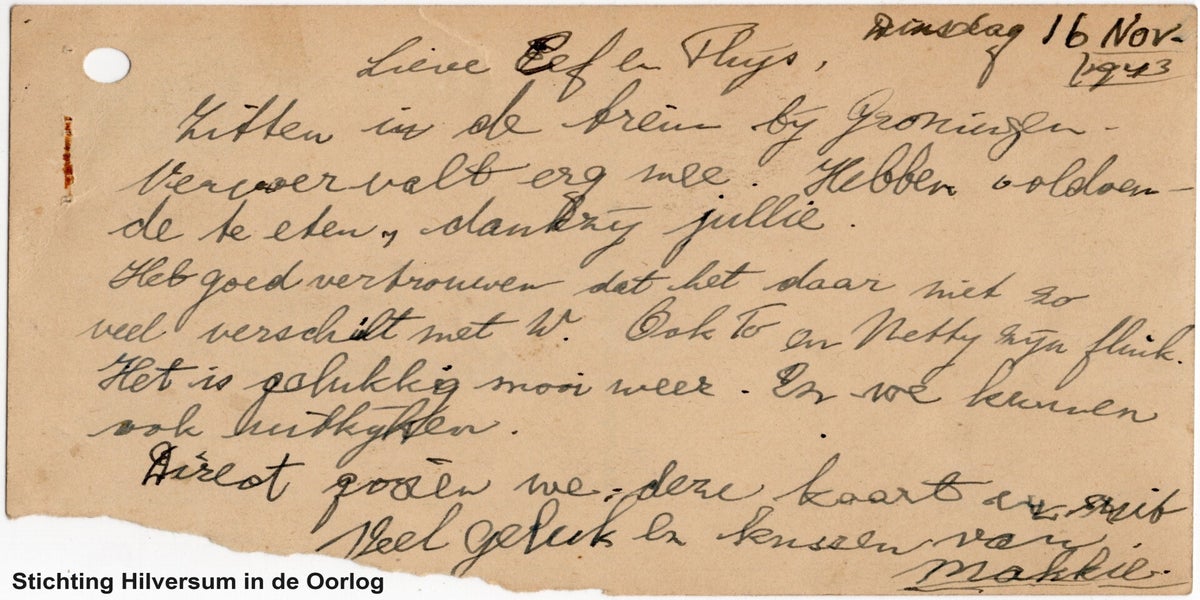 Dinsdag 16 Nov.
1943
Lieve Eef en Thijs,
Zitten in de trein bij Groningen.
Vervoer valt erg mee. Hebben voldoen-
de te eten, dankzij jullie.
Heb goed vertrouwen dat het daar niet zo
veel verschilt met W. Ook To en Netty zijn flink.
Het is gelukkig mooi weer. En we kunnen
ook uitkijken.
Direct gooien we deze kaart er uit
Veel geluk en kussen van
Makkie.
Stichting Hilversum in de Oorlog